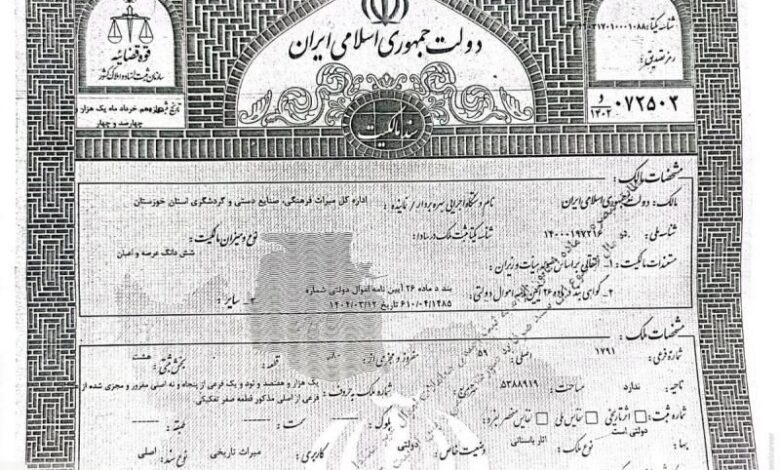 دولت جمهوری اسلامی ایران
قوه قضائیه
سازمان ثبت اسناد و املاک کشور
شناسه یکتا:
رمز تصدیق:
تاریخ خرداد ماه یک هزار و
چهارصد و چهار
۰۷۲۵۰۲ و ۱۴۰۲
سند مالکیت
مشخصات مالک:
مالک: دولت جمهوری اسلامی ایران
نام دستگاه اجرایی بهره بردار / نماینده: اداره کل میراث فرهنگی، صنایع دستی و گردشگری استان خوزستان
شناسه ملی: ۱۴۰۰۰۱۹۷۲۱۶
شناسه یکتا ثبت ملک در سادا:
نوع و میزان مالکیت:
شش دانگ عرصه و اعیان
مستندات مالکیت: ۱- انتقالی بر اساس مصوبه هیات وزیران:
۲- گواهی بند د ماده ۲۶ آیین نامه اموال دولتی: بند د ماده ۲۶ آیین نامه اموال دولتی شماره ۶۱۰/۰۴/۱۴۸۵ تاریخ ۱۴۰۴/۰۳/۱۲
۳- سایر:
مشخصات ملک:
شماره فرعی: ۱۷۹۱ اصلی: ۵۹ مفروز و مجزی از: قطعه: بخش ثبتی: هشت
ناحیه: ندارد مساحت: ۵۳۸۸۹۱۹ مترمربع شماره ملک به حروف: یک هزار و هفتصد و نود و یک فرعی از پنجاه و نه اصلی مفروز و مجزی شده از
فرعی از اصلی مذکور قطعه صفر تفکیکی
شماره ثبت: اثر تاریخی نفایس ملی نفایس منحصر بفرد بلوک: سمت: طبقه:
دولتی است
بها: نوع ملک: آثار باستانی وضعیت خاص: دولتی کاربری: میراث تاریخی نوع سند: اصلی